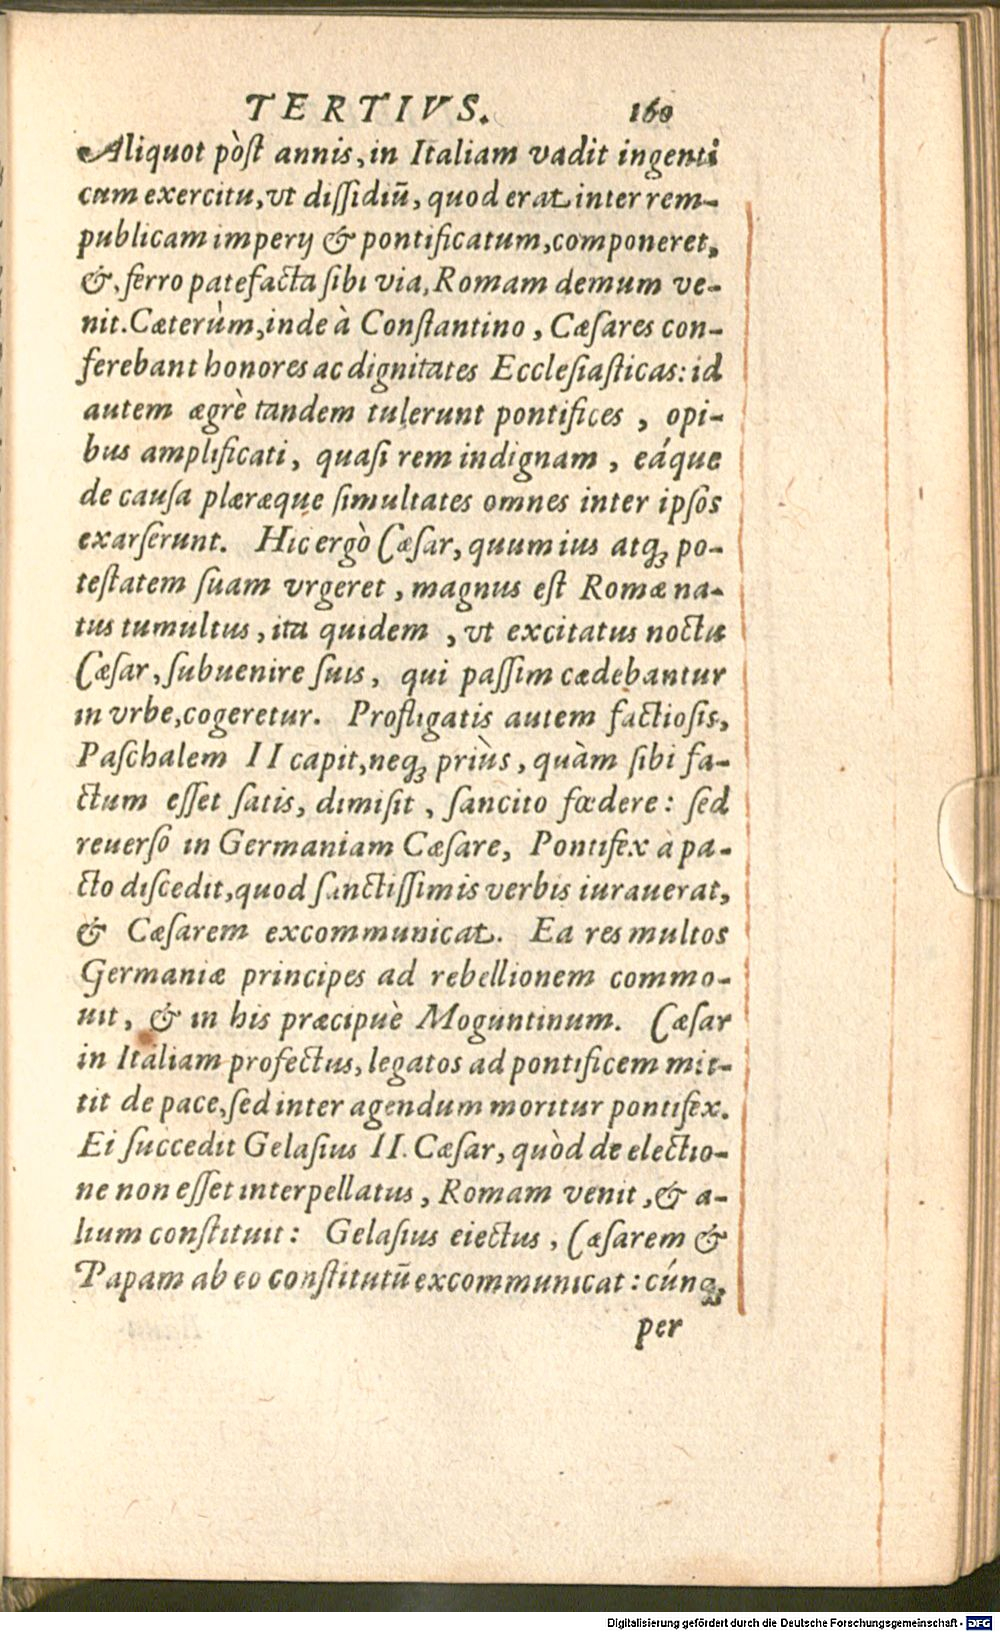 TERTIVS. 160
Aliquot pòſt annis, in Italiam vadit ingenti
cum exercitu, vt diſſidiū, quod erat inter rem-
publicam imperij & pontificatum, componeret,
&, ferro patefacta ſibi via, Romam demum ve-
nit. Cæterùm, inde à Conſtantino, Cæſares con-
ferebant honores ac dignitates Eccleſiaſticas: id
autem ægrè tandem tulerunt pontifices, opi-
bus amplificati, quaſi rem indignam, eáque
de cauſa plæræque ſimultates omnes inter ipſos
exarſerunt. Hic ergò Cæſar, quum ius atqꝫ po-
teſtatem ſuam vrgeret, magnus eſt Romæ na-
tus tumultus, ita quidem, vt excitatus noctu
Cæſar, ſubuenire ſuis, qui paſſim cædebantur
in vrbe, cogeretur. Profligatis autem factioſis,
Paſchalem II capit, neqꝫ priùs, quàm ſibi fa-
ctum eſſet ſatis, dimiſit, ſancito fœdere: ſed
reuerſo in Germaniam Cæſare, Pontifex à pa-
cto diſcedit, quod ſanctiſſimis verbis iurauerat,
& Cæſarem excommunicat. Ea res multos
Germaniæ principes ad rebellionem commo-
uit, & in his præcipuè Moguntinum. Cæſar
in Italiam profectus, legatos ad pontificem mit-
tit de pace, ſed inter agendum moritur pontifex.
Ei ſuccedit Gelaſius II. Cæſar, quòd de electio-
ne non eſſet interpellatus, Romam venit, & a-
lium conſtituit: Gelaſius eiectus, Cæſarem &
Papam ab eo conſtitutū excommunicat: cúnqꝫ
per
Digitalisierung gefördert durch die Deutsche Forschungsgemeinschaft - DFG